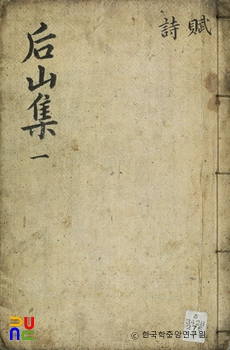 賦
詩
后山集
一
© 한국학중앙연구원